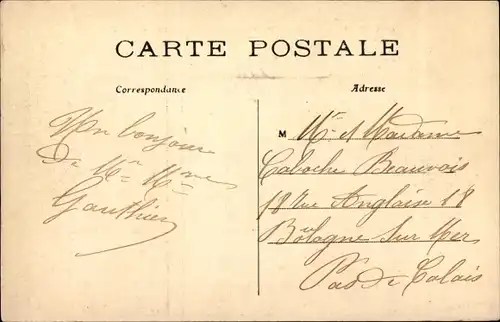 CARTE POSTALE
Correspondance
Adresse
Un bonjour
De Mr Mme
Gauthier
M Mr et Madame
Caboche Beauvois
18 Rue Anglaise 18
Boulogne sur Mer
Pas de Calais